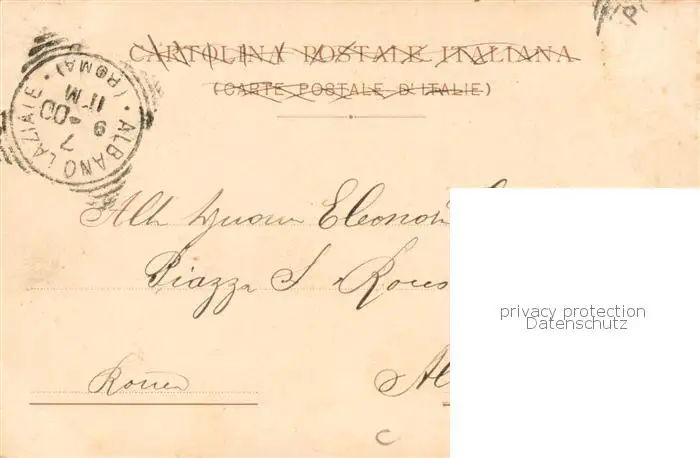 CARTOLINA POSTALE ITALIANA
(CARTE POSTALE D'ITALIE)
ALBANO LAZIALE
(ROMA)
7
9 - 00
11 M
Alla Eleonor
Piazza S. Rocc
Roma
Al
privacy protection
Datenschutz
C